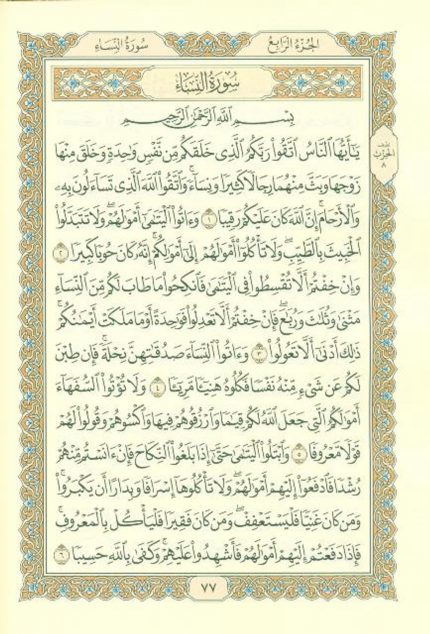 الجزء الرابع
سورة النساء
سورة النساء
بسم الله الرحمن الرحيم
يَٰٓأَيُّهَا ٱلنَّاسُ ٱتَّقُوا۟ رَبَّكُمُ ٱلَّذِى خَلَقَكُم مِّن نَّفْسٍ وَٰحِدَةٍ وَخَلَقَ مِنْهَا
زَوْجَهَا وَبَثَّ مِنْهُمَا رِجَالًا كَثِيرًا وَنِسَآءً ۚ وَٱتَّقُوا۟ ٱللَّهَ ٱلَّذِى تَسَآءَلُونَ بِهِۦ
وَٱلْأَرْحَامَ ۚ إِنَّ ٱللَّهَ كَانَ عَلَيْكُمْ رَقِيبًا ١ وَءَاتُوا۟ ٱلْيَتَٰمَىٰٓ أَمْوَٰلَهُمْ ۖ وَلَا تَتَبَدَّلُوا۟
ٱلْخَبِيثَ بِٱلطَّيِّبِ ۖ وَلَا تَأْكُلُوٓا۟ أَمْوَٰلَهُمْ إِلَىٰٓ أَمْوَٰلِكُمْ ۚ إِنَّهُۥ كَانَ حُوبًا كَبِيرًا ٢
وَإِنْ خِفْتُمْ أَلَّا تُقْسِطُوا۟ فِى ٱلْيَتَٰمَىٰ فَٱنكِحُوا۟ مَا طَابَ لَكُم مِّنَ ٱلنِّسَآءِ
مَثْنَىٰ وَثُلَٰثَ وَرُبَٰعَ ۖ فَإِنْ خِفْتُمْ أَلَّا تَعْدِلُوا۟ فَوَٰحِدَةً أَوْ مَا مَلَكَتْ أَيْمَٰنُكُمْ ۚ
ذَٰلِكَ أَدْنَىٰٓ أَلَّا تَعُولُوا۟ ٣ وَءَاتُوا۟ ٱلنِّسَآءَ صَدُقَٰتِهِنَّ نِحْلَةً ۚ فَإِن طِبْنَ
لَكُمْ عَن شَىْءٍ مِّنْهُ نَفْسًا فَكُلُوهُ هَنِيٓـًٔا مَّرِيٓـًٔا ٤ وَلَا تُؤْتُوا۟ ٱلسُّفَهَآءَ
أَمْوَٰلَكُمُ ٱلَّتِى جَعَلَ ٱللَّهُ لَكُمْ قِيَٰمًا وَٱرْزُقُوهُمْ فِيهَا وَٱكْسُوهُمْ وَقُولُوا۟ لَهُمْ
قَوْلًا مَّعْرُوفًا ٥ وَٱبْتَلُوا۟ ٱلْيَتَٰمَىٰ حَتَّىٰٓ إِذَا بَلَغُوا۟ ٱلنِّكَاحَ فَإِنْ ءَانَسْتُم مِّنْهُمْ
رُشْدًا فَٱدْفَعُوٓا۟ إِلَيْهِمْ أَمْوَٰلَهُمْ ۖ وَلَا تَأْكُلُوهَآ إِسْرَافًا وَبِدَارًا أَن يَكْبَرُوا۟ ۚ
وَمَن كَانَ غَنِيًّا فَلْيَسْتَعْفِفْ ۖ وَمَن كَانَ فَقِيرًا فَلْيَأْكُلْ بِٱلْمَعْرُوفِ ۚ
فَإِذَا دَفَعْتُمْ إِلَيْهِمْ أَمْوَٰلَهُمْ فَأَشْهِدُوا۟ عَلَيْهِمْ ۚ وَكَفَىٰ بِٱللَّهِ حَسِيبًا ٦
الحزب
٨
٧٧